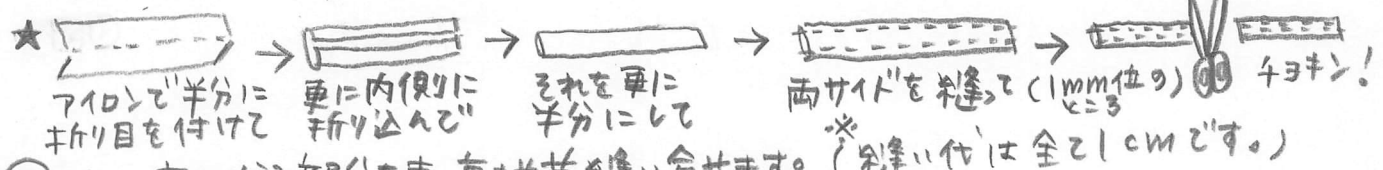 ★
アイロンで半分に
折り目を付けて
更に内側に
折り込んで
それを更に
半分にして
両サイドを縫って
(1mm位の
ところ)
チョキン!
※
(縫い代は全て1cmです。)